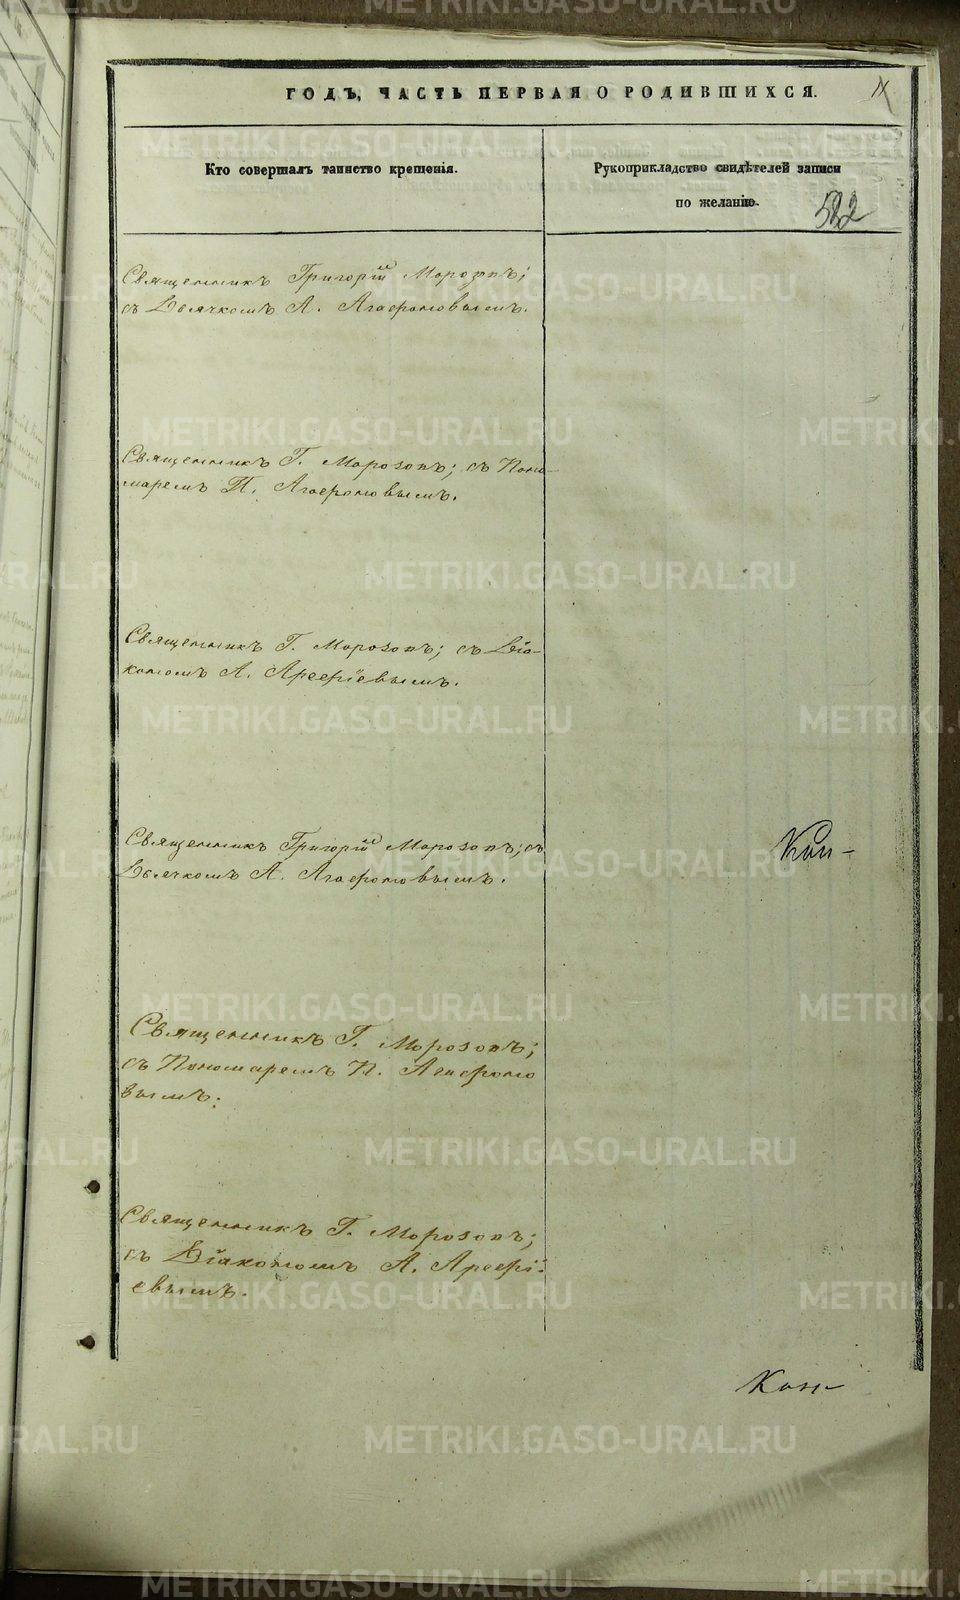 ГОДЪ, ЧАСТЬ ПЕРВАЯ О РОДИВШИХСЯ.
Кто совершалъ таинство крещенія.
Рукоприкладство свидѣтелей записи
по желанію.
522
Священникъ Григорій Морозовъ;
съ Дьячкомъ А. Агафоновымъ.
Священникъ Г. Морозовъ; съ Поно-
маремъ П. Агафоновымъ.
Священникъ Г. Морозовъ; съ Діа-
кономъ А. Арефіевымъ.
Священникъ Григорій Морозовъ; съ
Дьячкомъ А. Агафоновымъ.
Священникъ Г. Морозовъ;
съ Пономаремъ П. Агафоно
вымъ.
Священникъ Г. Морозовъ;
съ Діакономъ А. Арефі-
евымъ.
METRIKI.GASO-URAL.RU